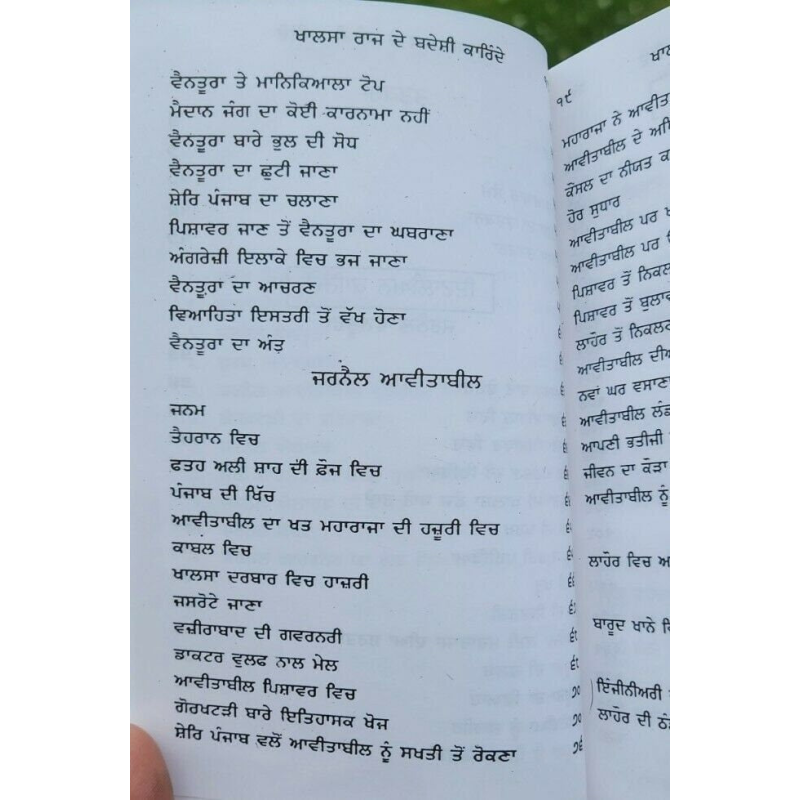 ਖਾਲਸਾ ਰਾਜ ਦੇ ਬਦੇਸ਼ੀ ਕਾਰਿੰਦੇ
ਵੈਨਤੂਰਾ ਤੇ ਮਾਨਿਕਿਆਲਾ ਟੋਪ
ਮੈਦਾਨ ਜੰਗ ਦਾ ਕੋਈ ਕਾਰਨਾਮਾ ਨਹੀਂ
ਵੈਨਤੂਰਾ ਬਾਰੇ ਭੁਲ ਦੀ ਸੋਧ
ਵੈਨਤੂਰਾ ਦਾ ਛੁਟੀ ਜਾਣਾ
ਸ਼ੇਰਿ ਪੰਜਾਬ ਦਾ ਚਲਾਣਾ
ਪਿਸ਼ਾਵਰ ਜਾਣ ਤੋਂ ਵੈਨਤੂਰਾ ਦਾ ਘਬਰਾਣਾ
ਅੰਗਰੇਜ਼ੀ ਇਲਾਕੇ ਵਿਚ ਭਜ ਜਾਣਾ
ਵੈਨਤੂਰਾ ਦਾ ਆਚਰਣ
ਵਿਆਹਿਤਾ ਇਸਤਰੀ ਤੋਂ ਵੱਖ ਹੋਣਾ
ਵੈਨਤੂਰਾ ਦਾ ਅੰਤ
ਜਰਨੈਲ ਆਵੀਤਾਬੀਲ
ਜਨਮ
ਤੈਹਰਾਨ ਵਿਚ
ਫਤਹ ਅਲੀ ਸ਼ਾਹ ਦੀ ਫ਼ੌਜ ਵਿਚ
ਪੰਜਾਬ ਦੀ ਖਿੱਚ
ਆਵੀਤਾਬੀਲ ਦਾ ਖਤ ਮਹਾਰਾਜਾ ਦੀ ਹਜ਼ੂਰੀ ਵਿਚ
ਕਾਬਲ ਵਿਚ
ਖਾਲਸਾ ਦਰਬਾਰ ਵਿਚ ਹਾਜ਼ਰੀ
ਜਸਰੋਟੇ ਜਾਣਾ
ਵਜ਼ੀਰਾਬਾਦ ਦੀ ਗਵਰਨਰੀ
ਡਾਕਟਰ ਵੁਲਫ ਨਾਲ ਮੇਲ
ਆਵੀਤਾਬੀਲ ਪਿਸ਼ਾਵਰ ਵਿਚ
ਗੋਰਖਟੜੀ ਬਾਰੇ ਇਤਿਹਾਸਕ ਖੋਜ
ਸ਼ੇਰਿ ਪੰਜਾਬ ਵਲੋਂ ਆਵੀਤਾਬੀਲ ਨੂੰ ਸਖਤੀ ਤੋਂ ਰੋਕਣਾ
੧੯
ਮਹਾਰਾਜਾ ਨੇ
ਆਵੀਤਾਬੀਲ ਦੇ
ਕੌਸਲ ਦਾ ਨੀਯਤ
ਹੋਰ ਸੁਧਾਰ
ਆਵੀਤਾਬੀਲ ਪਰ
ਆਵੀਤਾਬੀਲ ਪਰ
ਪਿਸ਼ਾਵਰ ਤੋਂ
ਪਿਸ਼ਾਵਰ ਤੋਂ
ਲਾਹੌਰ ਤੋਂ
ਆਵੀਤਾਬੀਲ
ਨਵਾਂ ਘਰ
ਆਵੀਤਾਬੀਲ
ਆਪਣੀ ਭਤੀਜੀ
ਜੀਵਨ ਦਾ ਕੌੜਾ
ਆਵੀਤਾਬੀਲ ਨੂੰ
ਲਾਹੌਰ ਵਿਚ
ਬਾਰੂਦ ਖਾਨੇ
ਇੰਜੀਨੀਅਰੀ
ਲਾਹੌਰ ਦੀ